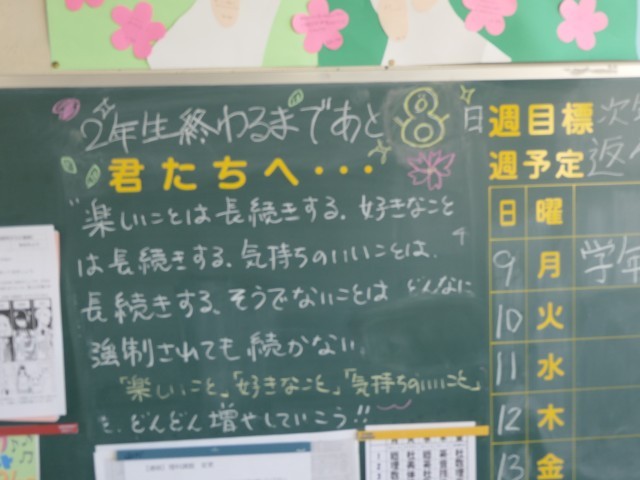 2年生終わるまであと8日
君たちへ・・・
"楽しいことは長続きする。好きなこと
は長続きする。気持ちのいいことは、
長続きする。そうでないことは どんなに
強制されても続かない。
「楽しいこと」「好きなこと」「気持ちのいいこと」
を、どんどん増やしていこう!!
週目標 次
週予定 返
日 曜
9 月 学年
10 火
11 水
12 木
13 金